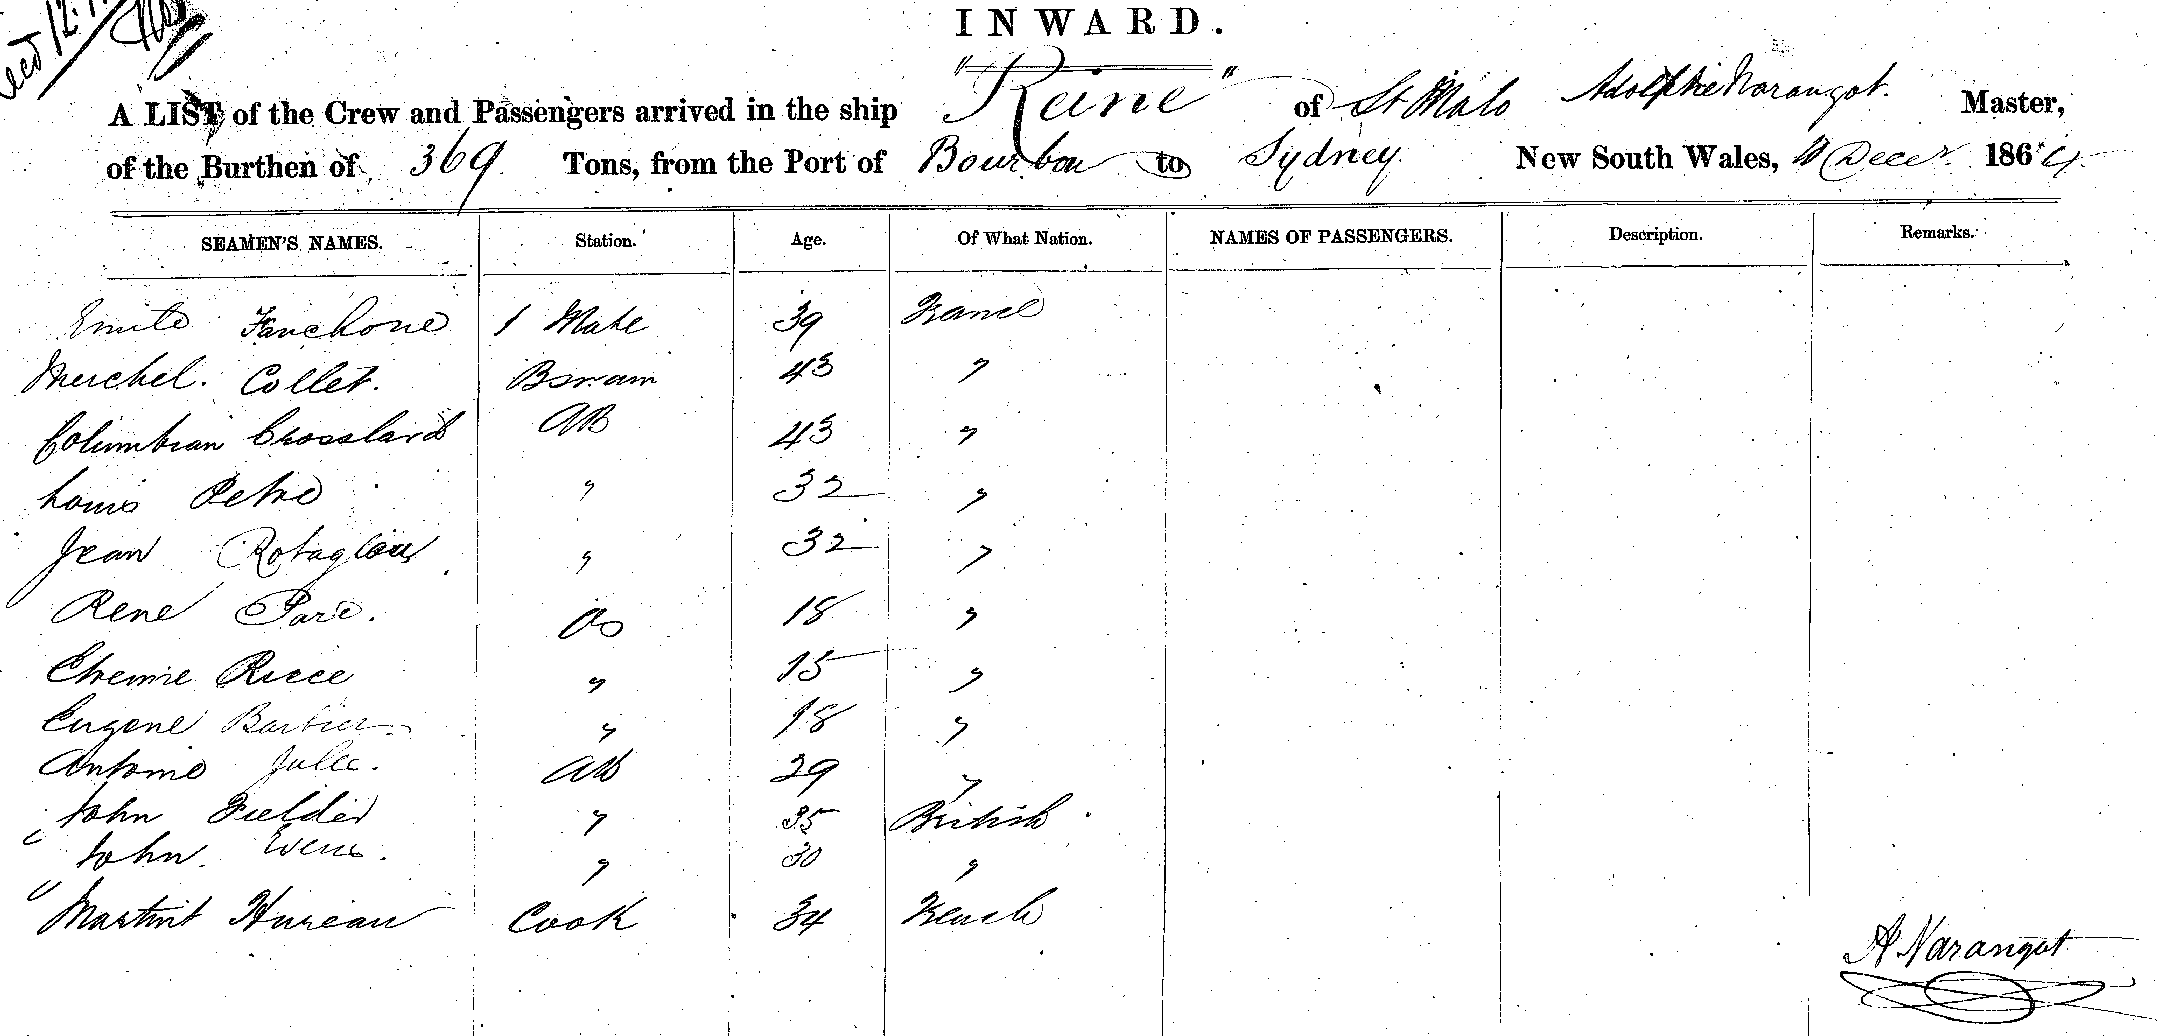 INWARD.
A LIST of the Crew and Passengers arrived in the ship "Reine" of St Malo Adolphe Narangot. Master,
of the Burthen of 369 Tons, from the Port of Bourbon to Sydney. New South Wales, Decer. 1864
SEAMEN'S NAMES. Station. Age. Of What Nation. NAMES OF PASSENGERS. Description. Remarks.
Emile Fanchone 1 Mate 39 France
Merchel. Collet. Bswain 43 "
Columbian Crossland AB 43 "
Louis Petre " 32 "
Jean " 32 "
Rene Pare. OS 18 "
Ricce " 15 "
Eugene Barbier " 18 "
Antoine Julee. AB 29 "
John Fielder " 35 British
John Evens. " 30 "
Martint Hureau Cook 34 French
A Narangot